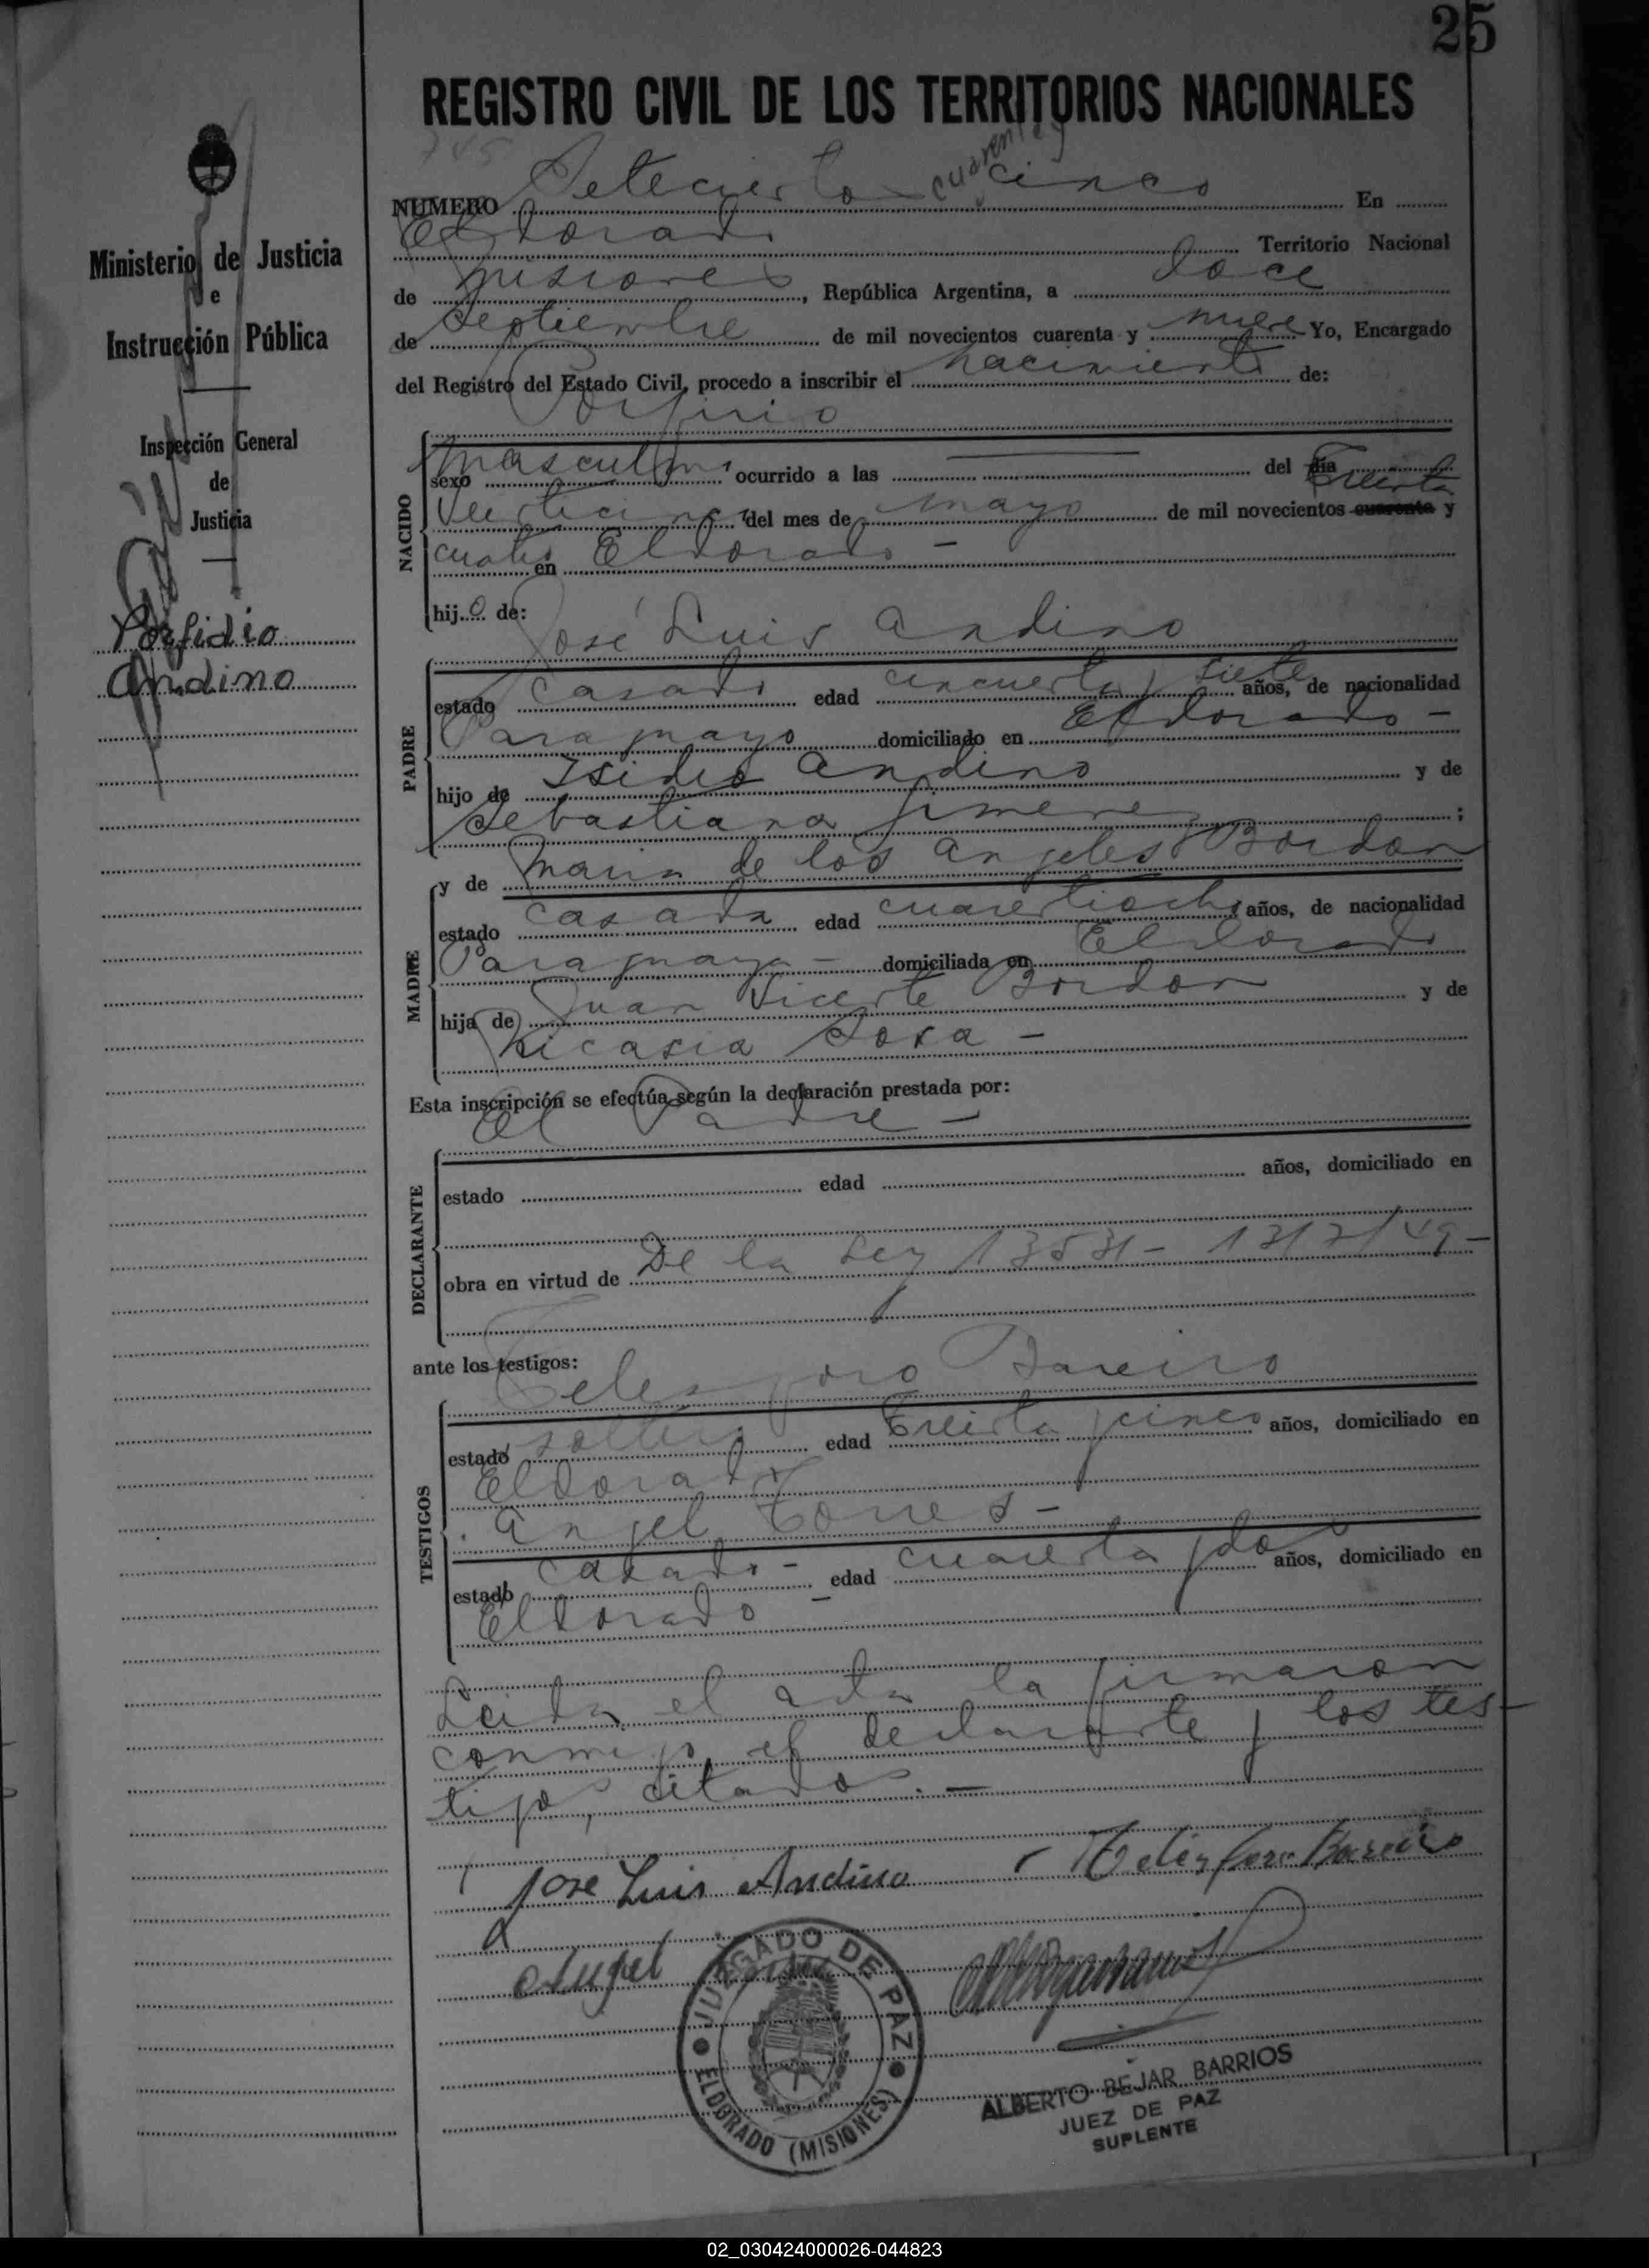 25
REGISTRO CIVIL DE LOS TERRITORIOS NACIONALES
745
cuarenta y
NUMERO Setecientos cinco En
Eldorado Territorio Nacional
de Misiones, República Argentina, a doce
de Septiembre de mil novecientos cuarenta y nueve Yo, Encargado
del Registro del Estado Civil, procedo a inscribir el nacimiento de:
Porfirio
NACIDO
sexo masculino ocurrido a las del dia
Veinticinco del mes de mayo de mil novecientos cuarenta y
Treinta
cuatro en Eldorado -
hijo de:
José Luis Andino
PADRE
estado Casado edad cincuenta y siete años, de nacionalidad
Paraguayo domiciliado en Eldorado -
hijo de Isidro Andino y de
Sebastiana Jimenez ;
MADRE
y de Maria de los Angeles Bordon
estado casada edad cuarentiocho años, de nacionalidad
Paraguaya - domiciliada en Eldorado
hija de Juan Vicente Bordon y de
Nicasia Sosa -
Esta inscripción se efectúa según la declaración prestada por:
El Padre -
DECLARANTE
estado edad años, domiciliado en
obra en virtud de De la Ley 13531 - 13/7/49 -
ante los testigos:
Telesforo Bareiro
TESTIGOS
estado soltero edad treinta y cinco años, domiciliado en
Eldorado
Angel Torres -
estado casado - edad cuarenta y dos años, domiciliado en
Eldorado -
Leida el acta la firmaron
conmigo, el declarante y los tes-
tigos, citados. -
Jose Luis Andino Telesforo Bareiro
Angel
JUZGADO DE PAZ
ELDORADO (MISIONES)
ALBERTO BEJAR BARRIOS
JUEZ DE PAZ
SUPLENTE
Ministerio de Justicia
e
Instrucción Pública
Inspección General
de
Justicia
Porfidio
Andino
02_030424000026-044823